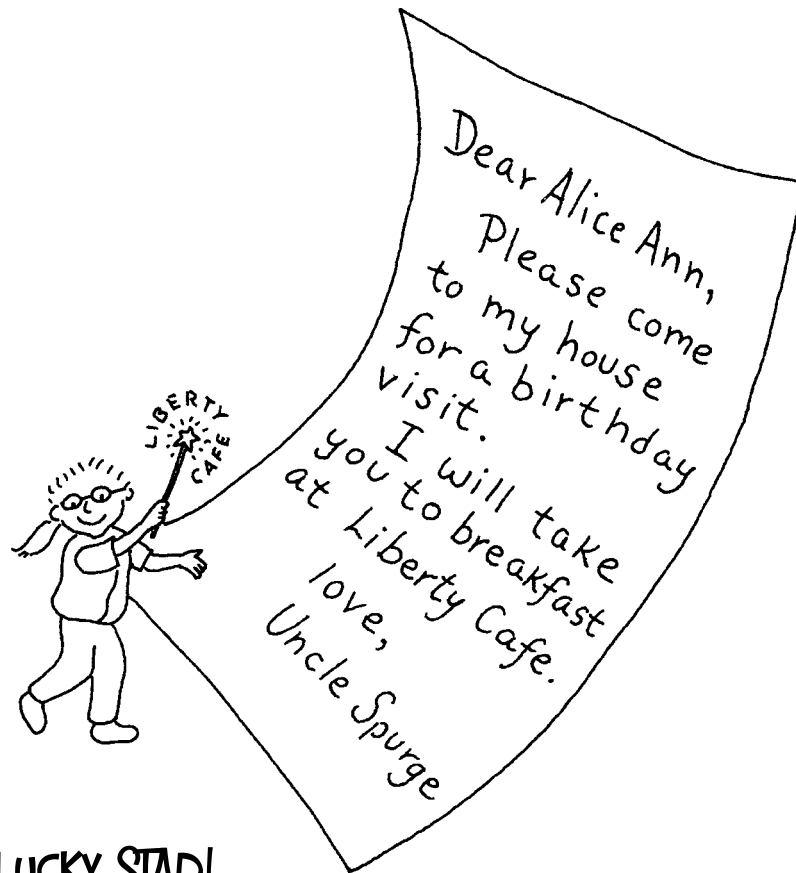 LIBERTY
CAFE
Dear Alice Ann,
Please come
to my house
for a birthday
visit.
I will take
you to breakfast
at Liberty Cafe.
love,
Uncle Spurge
LUCKY STAR!